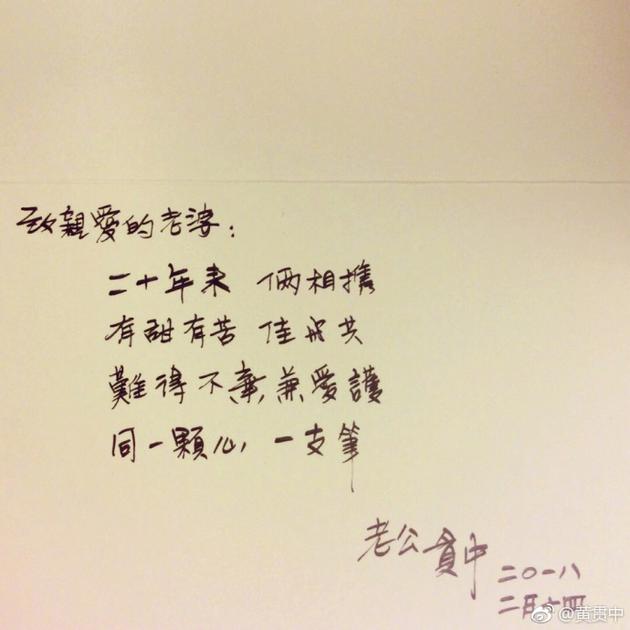 致親愛的老婆：
二十年来 倆相攜
有甜有苦 佳共
難得不棄兼愛護
同一顆心 一支筆
老公貫中
二〇一八
二月十四
@黄贯中